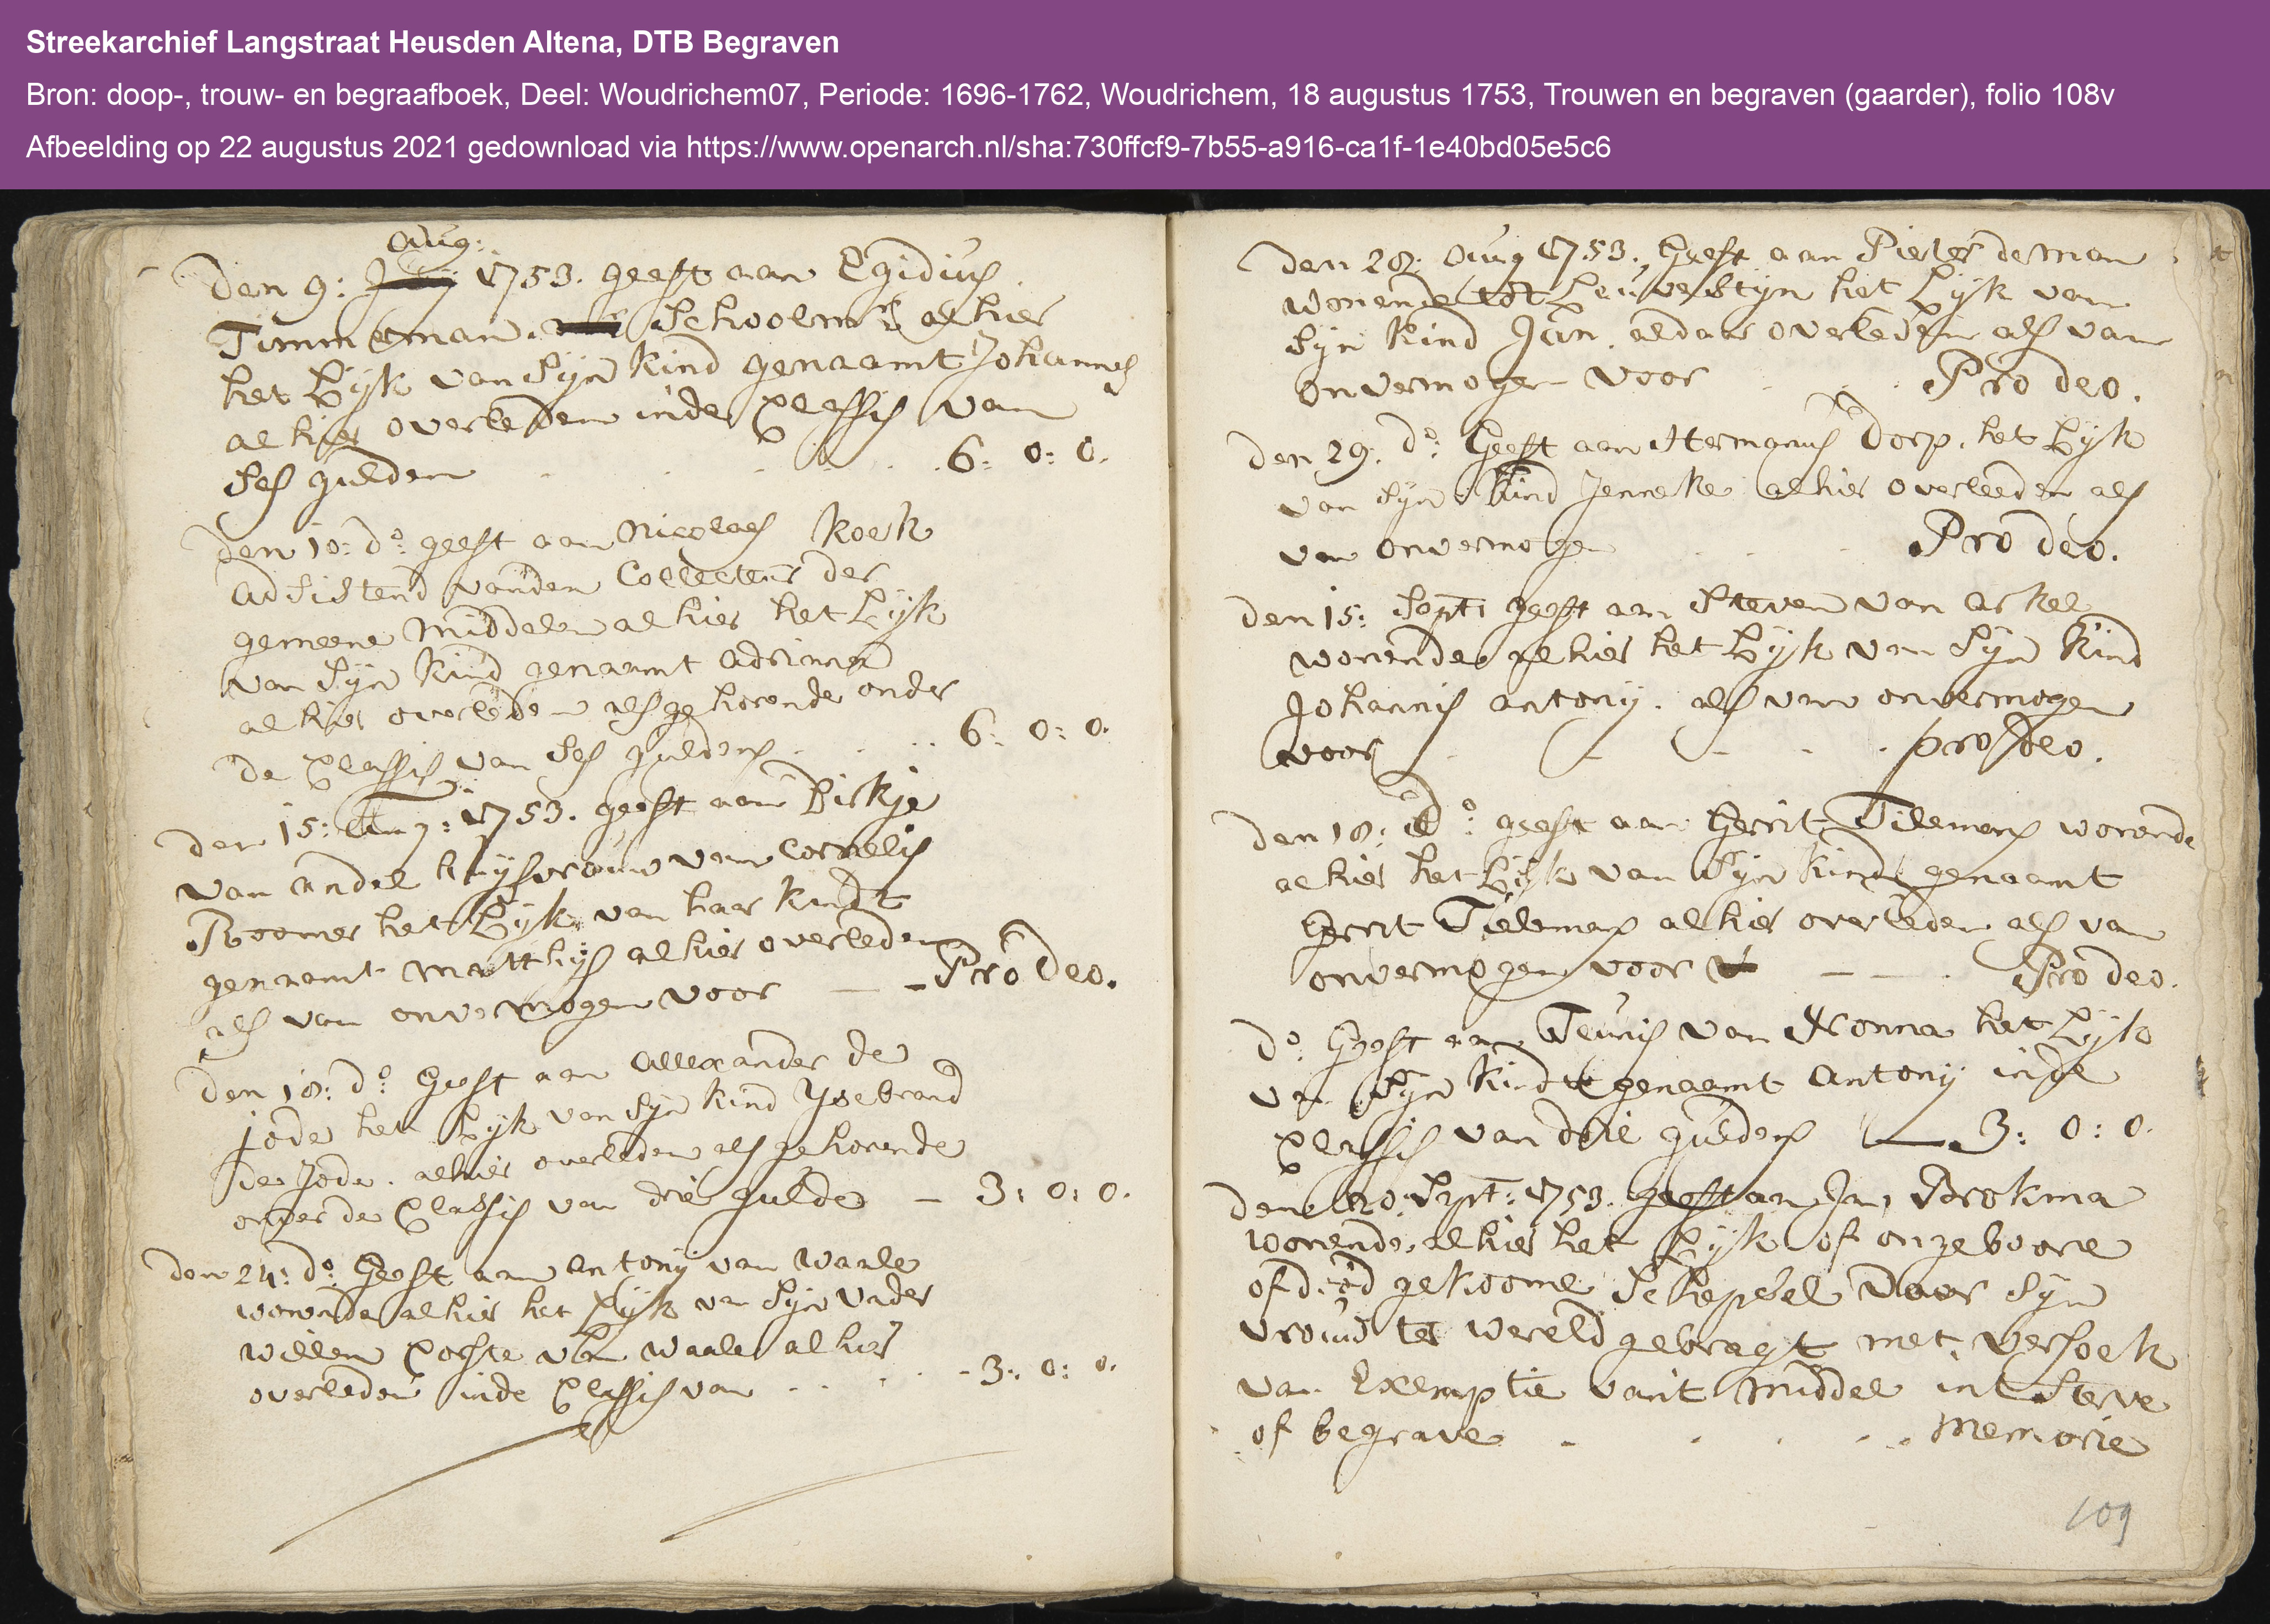 Streekarchief Langstraat Heusden Altena, DTB Begraven
Bron: doop-, trouw- en begraafboek, Deel: Woudrichem07, Periode: 1696-1762, Woudrichem, 18 augustus 1753, Trouwen en begraven (gaarder), folio 108v
Afbeelding op 22 augustus 2021 gedownload via https://www.openarch.nl/sha:730ffcf9-7b55-a916-ca1f-1e40bd05e5c6
Aug:
Den 9: 1753. geeft aan Egidius
Timmerman. Schoolmr alhier
het Lijk van Sijn kind genaamt Johannes
alhier overleden inde Classis van
Ses gulden 6: 0: 0.
Den 10: do: geeft aan Nicolaes Koek
adsistend vanden Collecteur der
gemeene Middelen alhier het Lijk
van Sijn kind genaamt Adriana
alhier overleden als gehorende onder
de Classis van Ses guldens 6: 0: 0.
den 15: Aug: 1753. geeft aan Dirkje
van Andel huijsvrouw van Cornelis
Roomer het Lijk van haar kindt
genaamt Matthijs alhier overleden
als van onvermogen voor Pro Deo.
den 18: do: Geeft aan Allexander de
jode het Lijk van Sijn kind Ysebrand
de Jode. alhier overleden als gehorende
onder de Classis van drie gulde 3: 0: 0.
den 24: do: Geeft aan Antonij van Waale
wonende alhier het Lijk van Sijn Vader
Willem van Waale alhier
overleden inde Classis van 3: 0: 0.
Den 28: Aug 1753. Geeft aan Pieter de Man
wonende tot Leuvestijn het Lijk van
Sijn kind Jan. aldaar overleden als van
onvermogen voor Pro deo.
den 29. do: Geeft aan Hermanus Dorp. het Lijk
van Sijn kind Jenneke alhier overleeden als
van onvermogen Pro deo.
den 15: Sept: geeft aan Steven van Arkel
wonende alhier het Lijk van Sijn kind
Johannis Antony. als van onvermogen
voor pro deo.
den 18: do: geeft aan Gerrit Tilemans wonende
alhier het Lijk van Sijn kind genaamt
Gerrit Tielemans alhier overleden als van
onvermogen voor Pro deo.
do: Geeft aan Teunis van Nonna het Lijk
van Sijn kindt genaamt Antony inde
Classis van drie guldens 3: 0: 0.
den 20: Sept: 1753. geeft aan Jan Brokma
wonende alhier het Lijk of ongeboore
of dood gekoome Schepsel door Sijn
vrouw ter wereld gebragt met versoek
van Exemptie van't middel int Sterve
of begrave Memorie
109